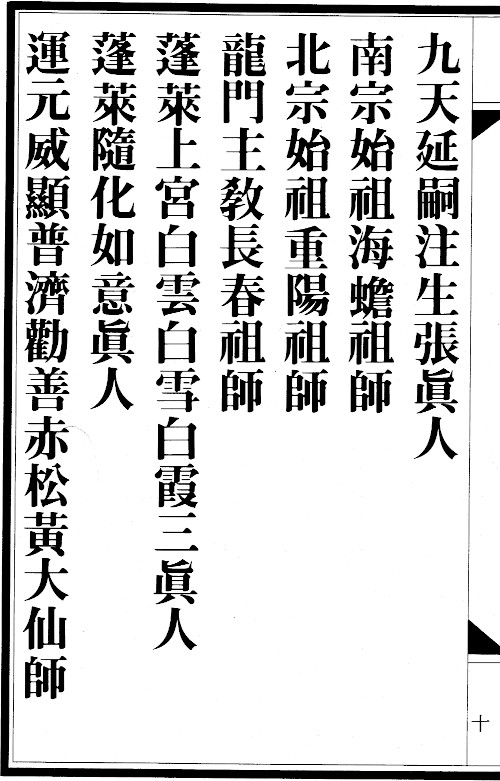 九天延嗣注生張眞人
南宗始祖海蟾祖師
北宗始祖重陽祖師
龍門主敎長春祖師
蓬萊上宮白雲白雪白霞三眞人
蓬萊隨化如意眞人
運元威顯普濟勸善赤松黃大仙師
十